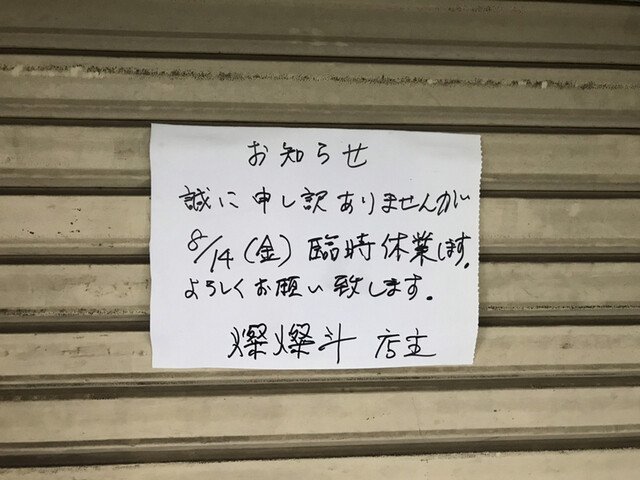 お知らせ
誠に申し訳ありませんが
8/14(金)臨時休業します。
よろしくお願い致します。
燦燦斗 店主